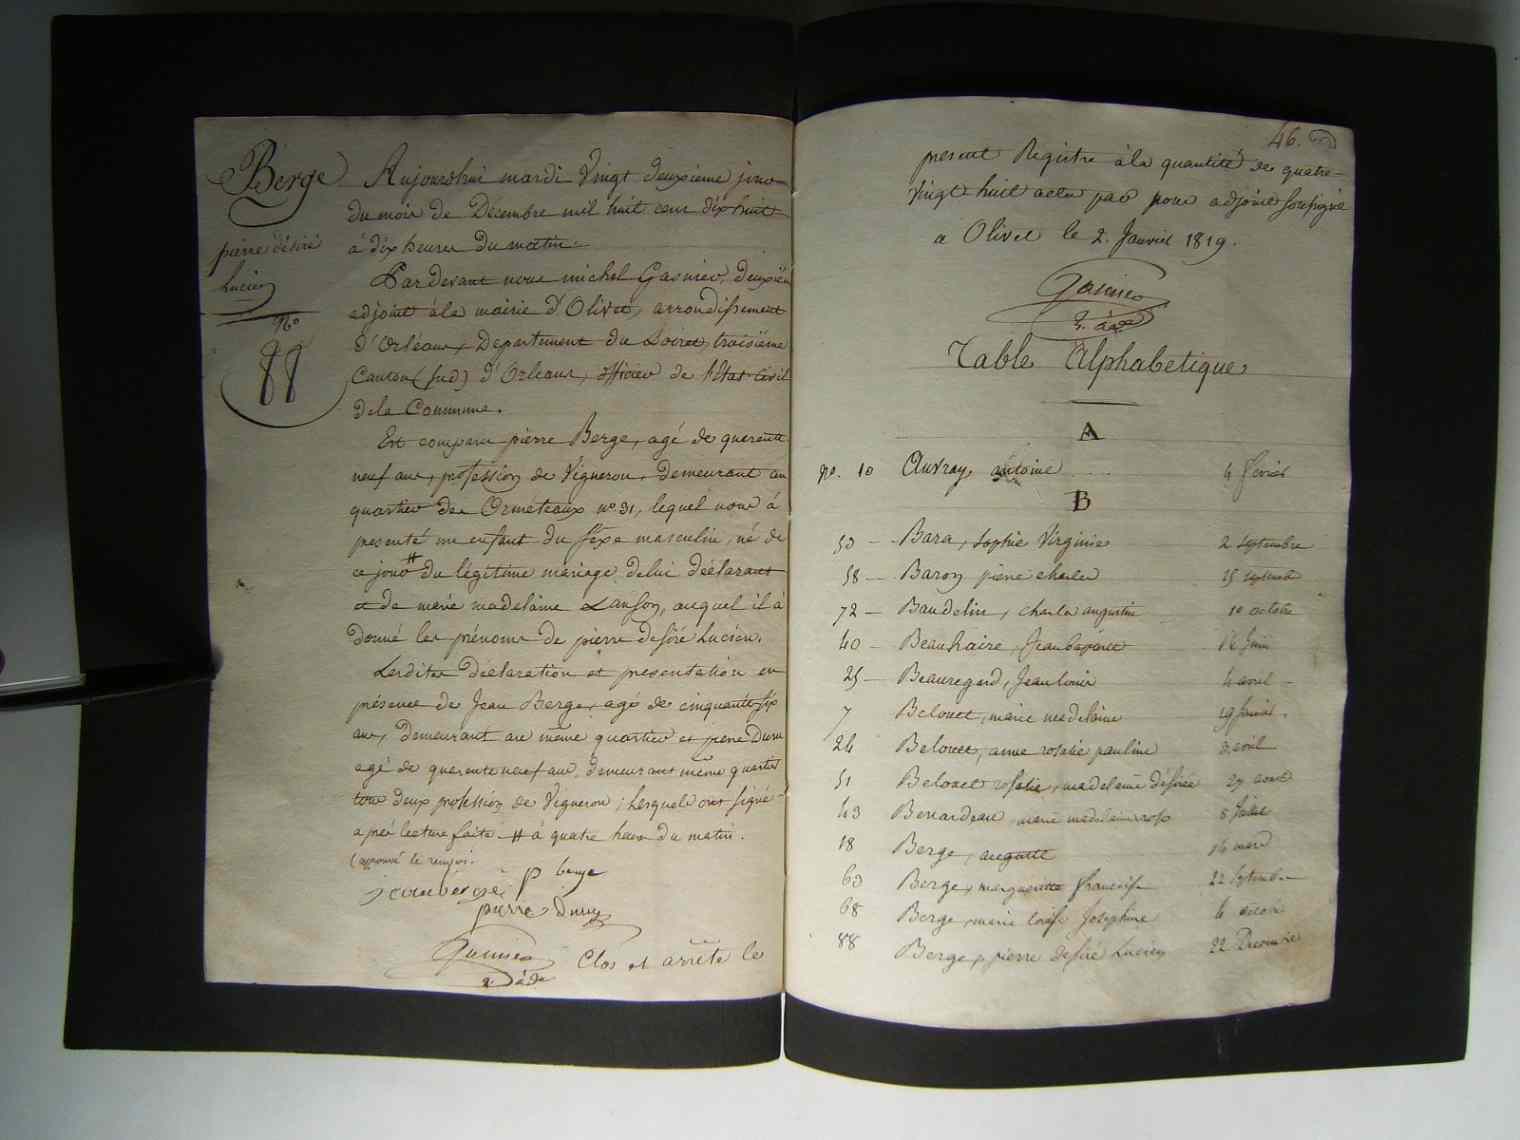 Berge
pierre désiré
Lucien
No
88
Aujourdhui mardi Vingt deuxieme jour
du mois de Décembre mil huit cent dix huit
à dix heures du matin.
Pardevant nous michel Gasnier, deuxième
adjoint à la mairie d'Olivet, arrondissement
d'Orléans, Departement du Loiret, troisième
Canton (sud) d'Orléans, officier de l'Etat Civil
de la Commune.
Est comparu pierre Berge, agé de quarente
neuf ans, profession de Vigneron, demeurant au
quartier des Ormeteaux no 31, lequel nous à
presenté un enfant du séxe masculin, né de
ce jour # du légitime mariage de lui déclarant
et de marie madelaine Lanson, auquel il à
donné les prénoms de pierre desiré Lucien.
Lesdites déclaration et presentation en
présence de Jean Berge, agé de cinquante six
ans, demeurant au même quartier et pierre Duru
agé de quarente neuf ans, demeurant même quartier
tous deux profession de Vigneron; lesquels ont signé
après lecture faite # à quatre heures du matin.
approuvé le renvoi.
jean berge P berge
pierre Duru
Gasnier
2. adj
Clos et arrêté le
46.
present Registre à la quantité de quatre
vingt huit actes par nous adjoint soussigné
a Olivet le 2. Janvier 1819.
Gasnier
2. adj
Table Alphabetique
A
No. 10 Auvray, antoine 4 fevrier
B
50 Bara, Sophie Virginie 2 septembre
58 Baron pierre charles 15 septembre
72 Baudelin, charles augustin 10 octobre
40 Beauhaire, Jean baptiste 16 Juin
25 Beauregard, Jean louis 4 avril
7 Belouet, marie madelaine 19 Janvier
24 Belouet, anne rosalie pauline 3 avril
51 Belouet rosalie, madelaine désirée 27 aout
43 Benardeau marie madelaine rose 8 Juillet
18 Berge, auguste 16 mars
63 Berge, marguerite françoise 22 Septembre
68 Berge, marie louise Josephine 4 octobre
88 Berge, pierre desiré Lucien 22 Decembre